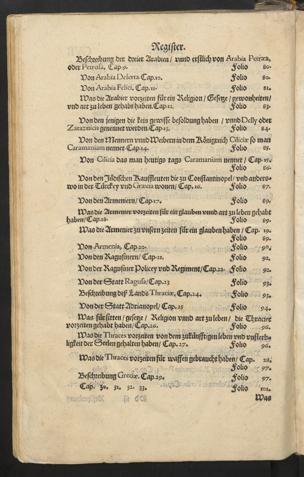 Register.
Beschreibung der dreier Arabien / vnnd erstlich von Arabia Petræa,
oder Petrosa, Cap.9. Folio 80.
Von Arabia Deserta Cap.10. Folio 80.
Von Arabia Felici, Cap.11. Folio 81.
Was die Arabier vorzeiten für ein Religion / Gesetz / gewonheiten /
vnd art zu leben gehabt haben. Cap.12. Folio 83.
Von den jenigen die kein gewisse besoldung haben / vnnd Delly oder
Zataznicis genennet werden. Cap.13. Folio 84.
Von den Mennern vnnd Weibern in dem Königreich Cilicie so man
Caramanium nennet Cap.14. Folio 86.
Von Cilicia das man heutigs tags Caramanium nennet / Cap.15.
Folio 86.
Von den Jüdischen Kauffleuten die zu Constantinopel / vnd anders-
wo in der Türckey vnd Græcia wonen / Cap.16. Folio 87.
Von den Armeniern / Cap.17. Folio 89.
Was die Armenier vorzeiten für ein glauben vnnd art zu leben gehabt
haben / Cap.18. Folio 89.
Was die Armenier zu vnsern zeiten für ein glauben haben / Cap. 19.
Folio 89.
Von Armenia, Cap.20. Folio 90.
Von den Ragusinern / Cap.21. Folio 92.
Von der Ragusiner Policey vnd Regiment / Cap.22. Folio 92.
Von der Statt Ragusa / Cap.23 Folio 93.
Beschreibung deß Lands Thraciæ, Cap.24. Folio 93.
Von der Statt Adrianopel / Cap.25 Folio 94.
Was für sitten / gesetz / Religion vnnd art zu leben / die Thraces
vorzeiten gehabt haben / Cap.26. Folio 96.
Was die Thraces vorzeiten von dem zukünfftigen leben vnd vnsterb-
ligkeit der Seelen gehalten haben / Cap.27. Folio 96.
Was die Thraces vorzeiten für waffen gebraucht haben / Cap. 28.
Folio 97.
Beschreibung Greciæ. Cap.29. Folio 97.
Cap. 30. 31. 32. 33. Folio 102.
Was